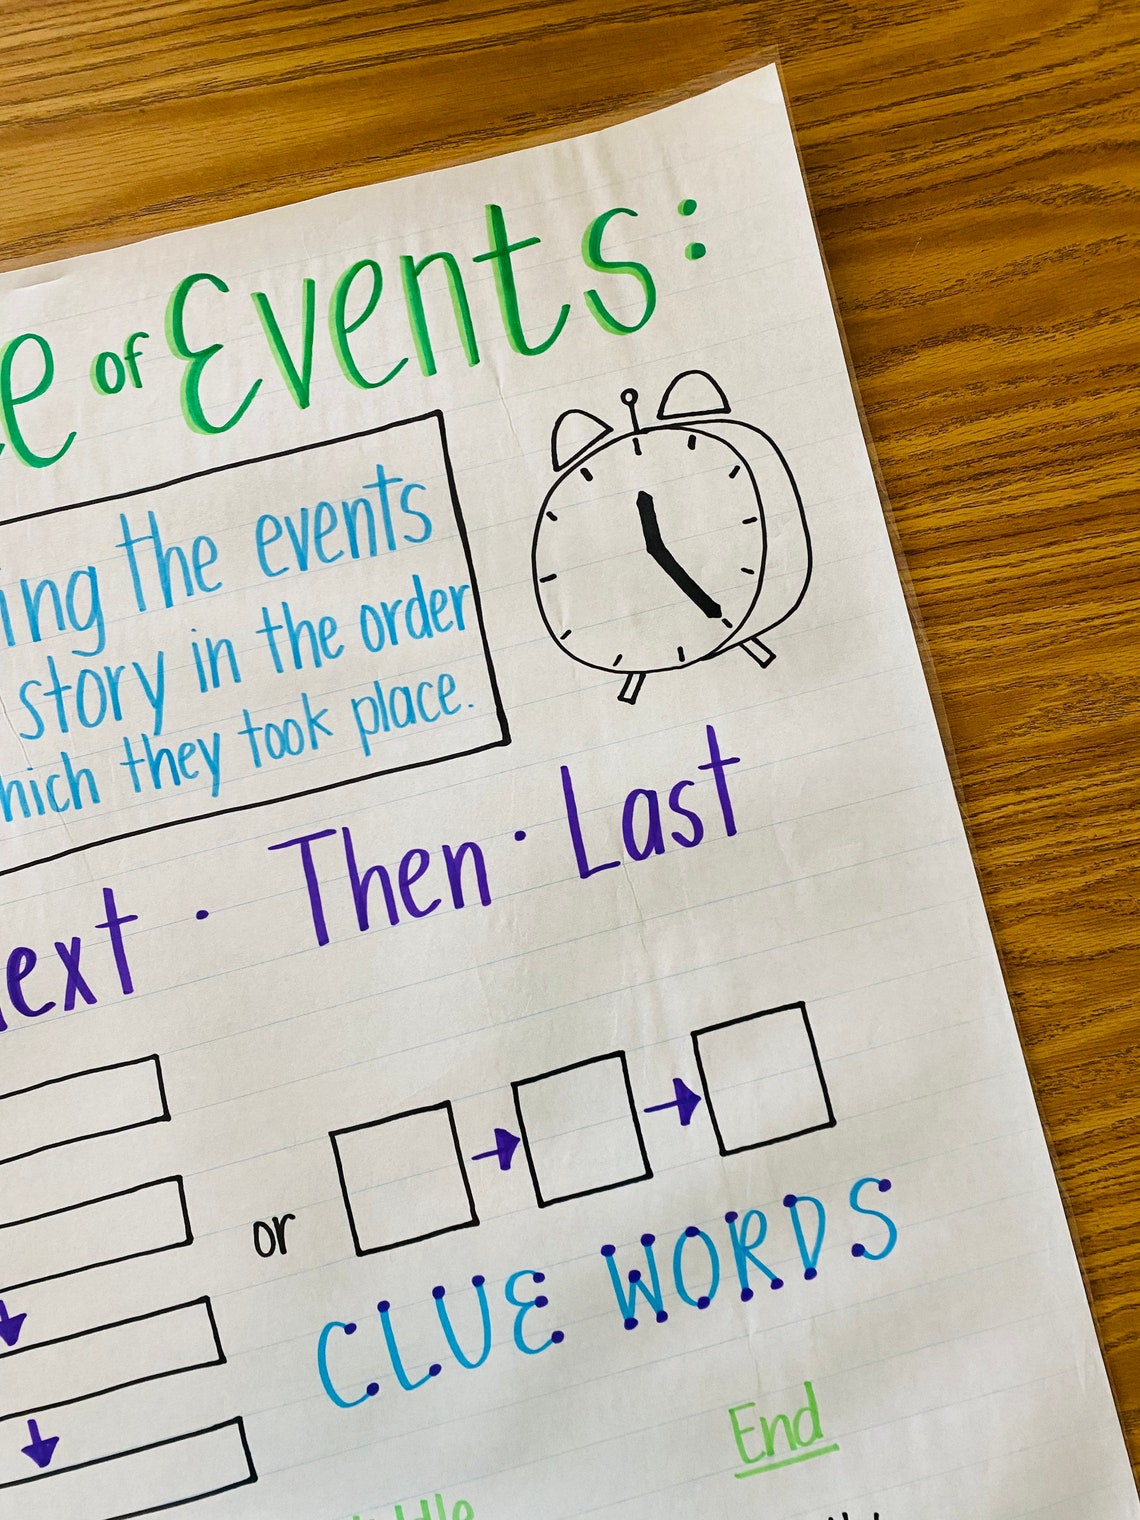 of Events:
the events
story in the order
they took place.
Then · Last
or
CLUE WORDS
End